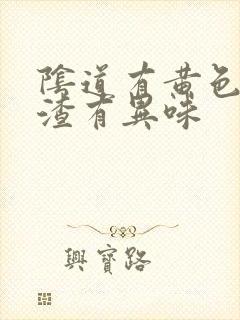 陰道有黄色
渣有異味
興寶路